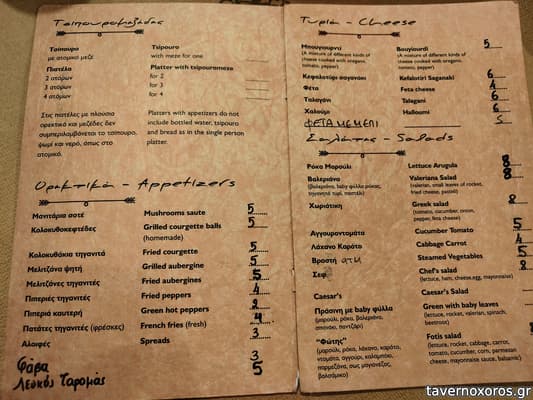 Τσιπουρομεζέδες
Τσίπουρο
με ατομικό μεζέ
Πιατέλα
2 ατόμων
3 ατόμων
4 ατόμων
Tsipouro
with meze for one
Platter with tsipouromeze
for 2
for 3
for 4
Στις πιατέλες με πλούσια
ορεκτικά και μεζέδες δεν
συμπεριλαμβάνεται το τσίπουρο,
ψωμί και νερό, όπως στο
ατομικό.
Platters with appetizers do not
include bottled water, tsipouro
and bread as in the single person
platter.
Ορεκτικά - Appetizers
Μανιτάρια σοτέ Mushrooms saute 5
Κολοκυθοκεφτέδες Grilled courgette balls 5
(homemade)
Κολοκυθάκια τηγανιτά Fried courgette 5
Μελιτζάνα ψητή Grilled aubergine 5
Μελιτζάνες τηγανιτές Fried aubergines 5
Πιπεριές τηγανιτές Fried peppers 4
Πιπεριά καυτερή Green hot peppers 2
Πατάτες τηγανιτές (φρέσκες) French fries (fresh) 4
Αλοιφές Spreads 3
Φάβα 3
Λευκός Ταραμάς 5
Τυριά - Cheese
Μπουγιουρντί Bouyiourdi 5
(A mixture of different kinds of
cheese cooked with oregano,
tomato, pepper)
(A mixture of different kinds of
cheese cooked with oregano,
tomato, pepper)
Κεφαλοτύρι σαγανάκι Kefalotiri Saganaki 6
Φέτα Feta cheese 4
Ταλαγάνι Talagani 6
Χαλούμι Halloumi 6
ΦΕΤΑ ΜΕ ΜΕΛΙ 5
Σαλάτες - Salads
Ρόκα Μαρούλι Lettuce Arugula 8
Βαλεριάνα Valeriana Salad 8
(βαλεριάνα, baby φύλλα ρόκας,
τηγανητό τυρί, παστέλι)
(valerian, small leaves of rocket,
fried cheese, pasteli)
Χωριάτικη Greek salad 8
(tomato, cucumber, onion,
pepper, feta cheese)
Αγγουροντομάτα Cucumber Tomato 5
Λάχανο Καρότο Cabbage Carrot 4
Βραστή Steamed Vegetables 5
Σεφ Chef's salad 8
(lettuce, ham, cheese, egg, mayonnaise)
Caesar's Caesar's Salad
Πράσινη με baby φύλλα Green with baby leaves
(μαρούλι, ρόκα, βαλεριάνα,
σπανάκι, παντζάρι)
(lettuce, rocket, valerian, spinach,
beetroot)
"Φώτης" Fotis salad 8
(μαρούλι, ρόκα, λάχανο, καρότο,
ντομάτα, αγγούρι, καλαμπόκι,
παρμεζάνα, σως μαγιονέζας,
βαλσάμικο)
(lettuce, rocket, cabbage, carrot,
tomato, cucumber, corn, parmesan
cheese, mayonnaise sauce, balsamic)
tavernoxoros.gr